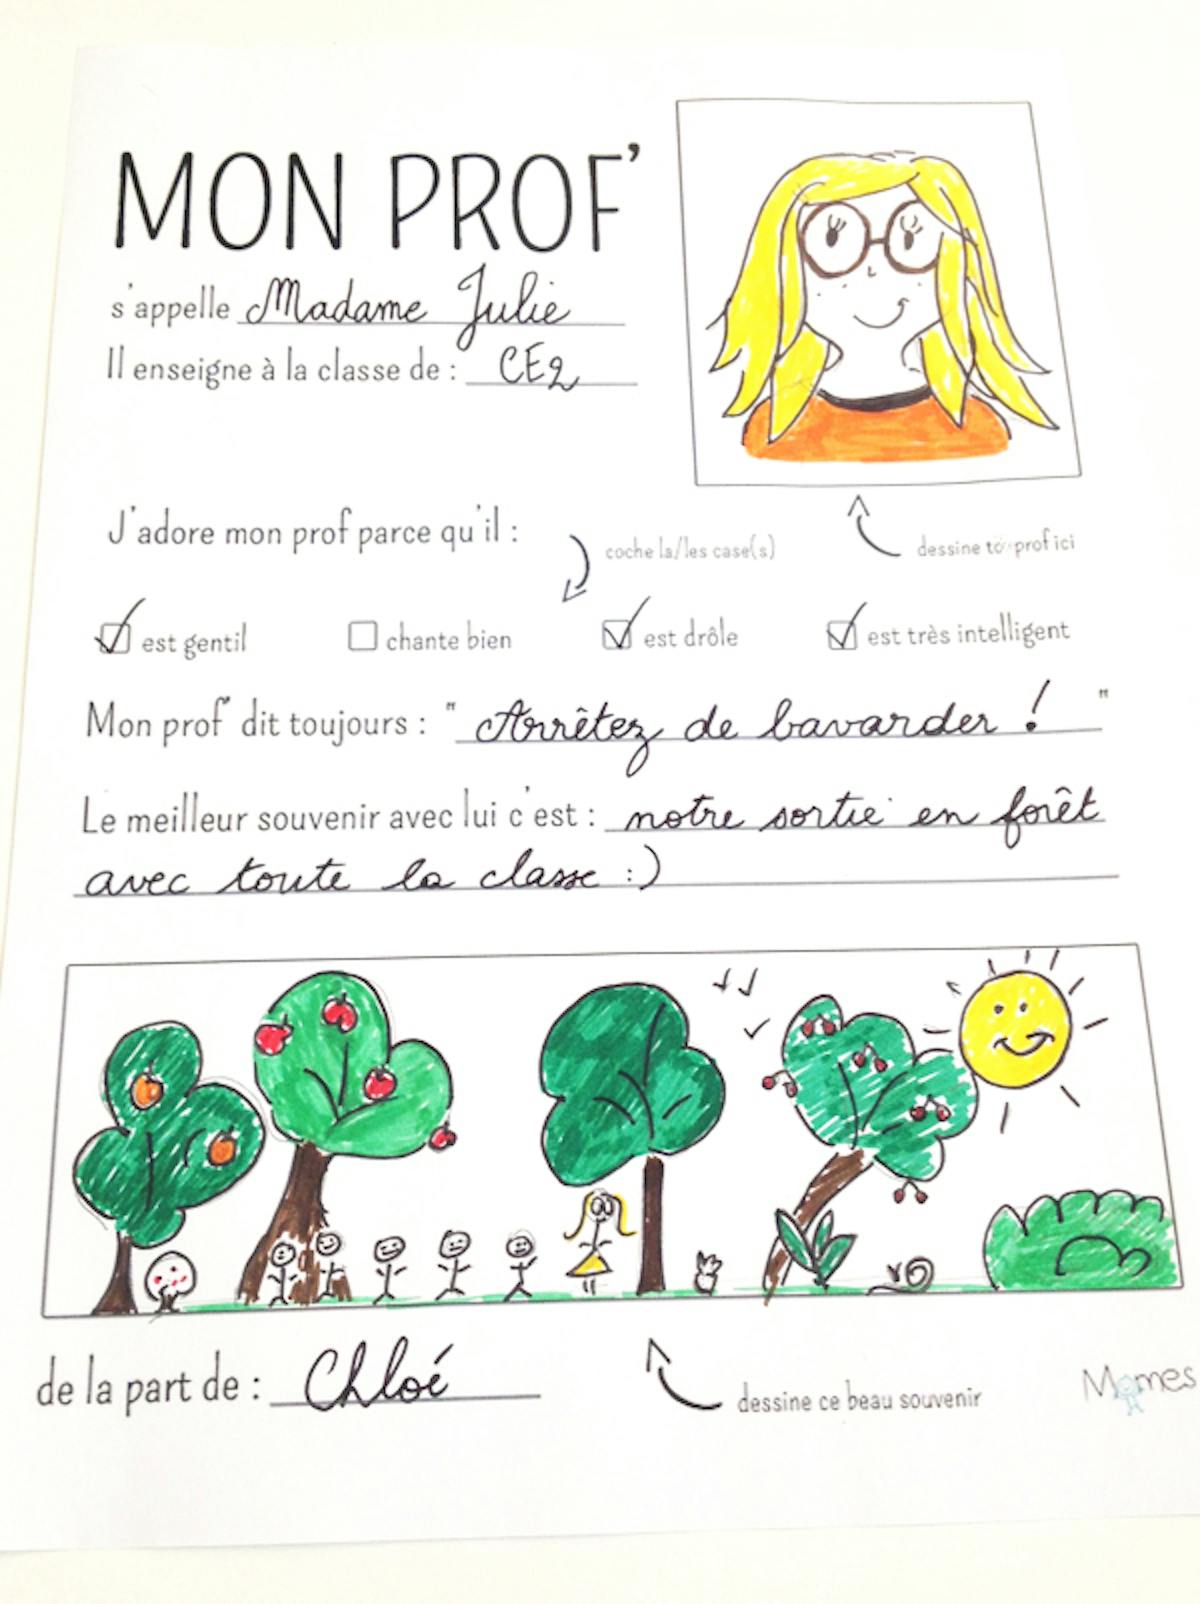 MON PROF'
s'appelle Madame Julie
Il enseigne à la classe de : CE2
J'adore mon prof parce qu'il :
coche la/les case(s)
dessine to prof ici
est gentil chante bien est drôle est très intelligent
Mon prof' dit toujours : " Arrêtez de bavarder ! "
Le meilleur souvenir avec lui c'est : notre sortie en forêt
avec toute la classe :)
de la part de : Chloé
dessine ce beau souvenir
Momes